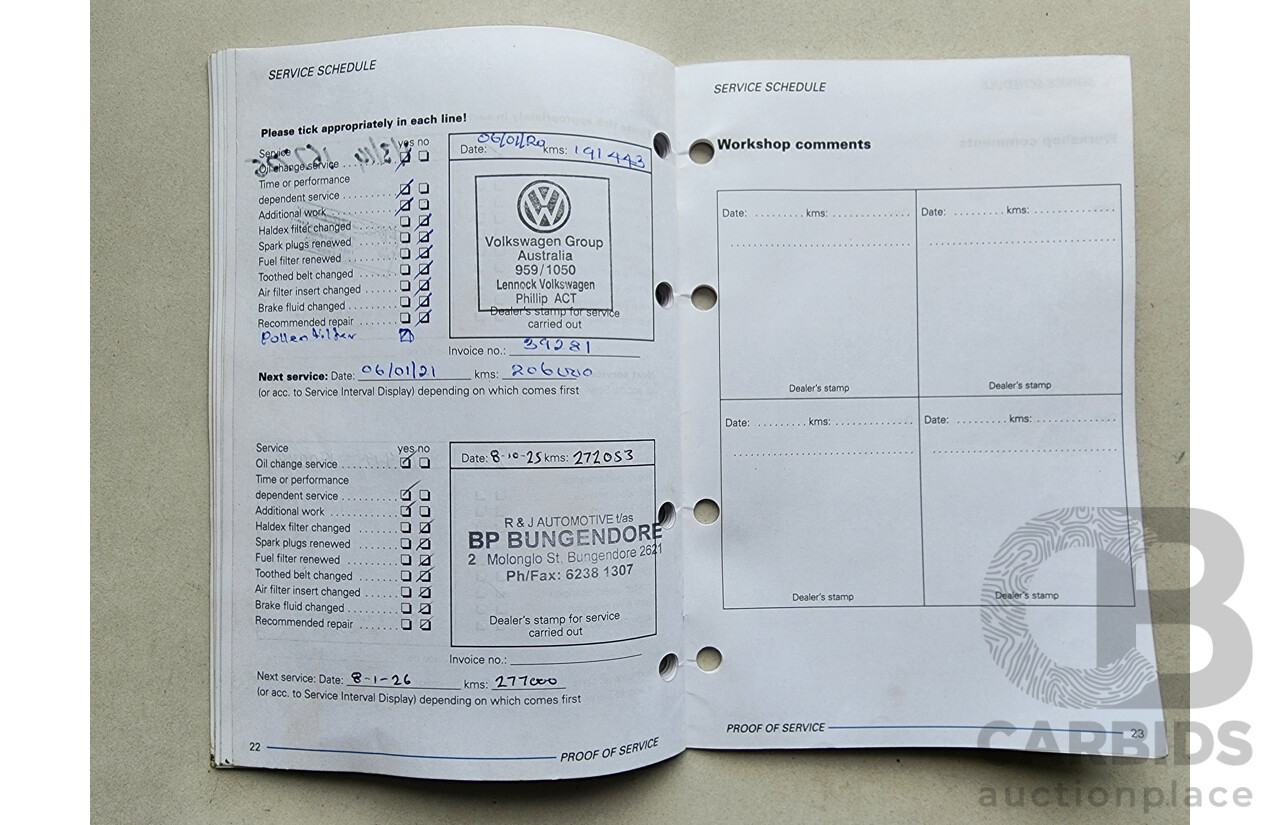 SERVICE SCHEDULE
Please tick appropriately in each line!
Service yes no
Oil change service
Time or performance
dependent service
Additional work
Haldex filter changed
Spark plugs renewed
Fuel filter renewed
Toothed belt changed
Air filter insert changed
Brake fluid changed
Recommended repair
Pollen filter
Date: 06/01/20 kms: 191443
Volkswagen Group
Australia
959/1050
Lennock Volkswagen
Phillip ACT
Dealer's stamp for service
carried out
Invoice no.: 39281
Next service: Date: 06/01/21 kms: 206000
(or acc. to Service Interval Display) depending on which comes first
Service yes no
Oil change service
Time or performance
dependent service
Additional work
Haldex filter changed
Spark plugs renewed
Fuel filter renewed
Toothed belt changed
Air filter insert changed
Brake fluid changed
Recommended repair
Date: 8-10-25 kms: 272053
R & J AUTOMOTIVE t/as
BP BUNGENDORE
2 Molonglo St, Bungendore 2621
Ph/Fax: 6238 1307
Dealer's stamp for service
carried out
Invoice no.:
Next service: Date: 8-1-26 kms: 277000
(or acc. to Service Interval Display) depending on which comes first
22 PROOF OF SERVICE
SERVICE SCHEDULE
Workshop comments
Date: kms: Date: kms:
Dealer's stamp Dealer's stamp
Date: kms: Date: kms:
Dealer's stamp Dealer's stamp
PROOF OF SERVICE 23
CARBIDS
auctionplace